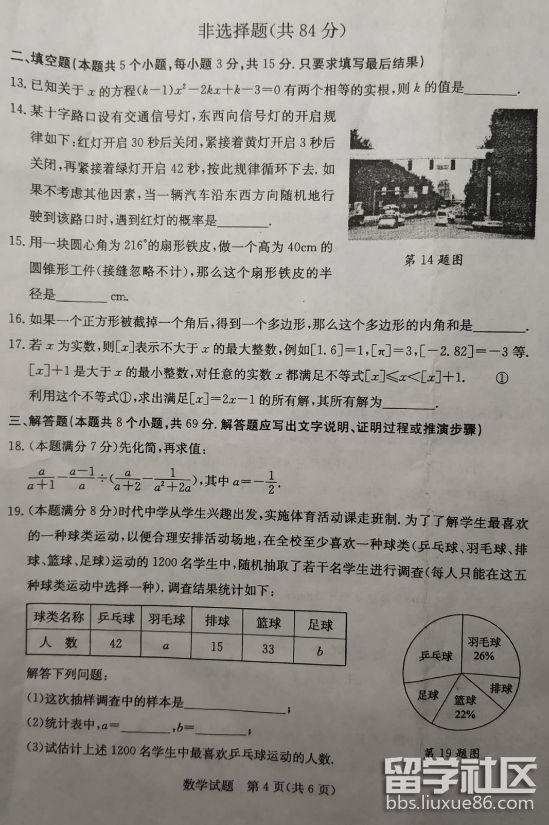 非选择题(共 84 分)
二、填空题(本题共 5 个小题,每小题 3 分,共 15 分. 只要求填写最后结果)
13. 已知关于 x 的方程(k−1)x²−2kx+k−3=0 有两个相等的实根,则 k 的值是________.
14. 某十字路口设有交通信号灯,东西向信号灯的开启规
律如下:红灯开启 30 秒后关闭,紧接着黄灯开启 3 秒后
关闭,再紧接着绿灯开启 42 秒,按此规律循环下去. 如
果不考虑其他因素,当一辆汽车沿东西方向随机地行
驶到该路口时,遇到红灯的概率是________.
第 14 题图
15. 用一块圆心角为 216°的扇形铁皮,做一个高为 40cm 的
圆锥形工件(接缝忽略不计),那么这个扇形铁皮的半
径是________cm.
16. 如果一个正方形被截掉一个角后,得到一个多边形,那么这个多边形的内角和是________.
17. 若 x 为实数,则[x]表示不大于 x 的最大整数,例如[1.6]=1,[π]=3,[−2.82]=−3 等.
[x]+1 是大于 x 的最小整数,对任意的实数 x 都满足不等式[x]≤x<[x]+1. ①
利用这个不等式①,求出满足[x]=2x−1 的所有解,其所有解为________.
三、解答题(本题共 8 个小题,共 69 分. 解答题应写出文字说明、证明过程或推演步骤)
18. (本题满分 7 分)先化简,再求值:
a/(a+1) − (a−1)/a ÷ (a/(a+2) − 1/(a²+2a)),其中 a=−1/2.
19. (本题满分 8 分)时代中学从学生兴趣出发,实施体育活动课走班制. 为了了解学生最喜欢
的一种球类运动,以便合理安排活动场地,在全校至少喜欢一种球类(乒乓球、羽毛球、排
球、篮球、足球)运动的 1200 名学生中,随机抽取了若干名学生进行调查(每人只能在这五
种球类运动中选择一种). 调查结果统计如下:
球类名称 乒乓球 羽毛球 排球 篮球 足球
人 数 42 a 15 33 b
乒乓球
羽毛球
26%
排球
篮球
22%
足球
第 19 题图
解答下列问题:
(1)这次抽样调查中的样本是________;
(2)统计表中,a=________,b=________;
(3)试估计上述 1200 名学生中最喜欢乒乓球运动的人数.
数学试题 第 4 页(共 6 页)
留学社区
bbs.liuxue86.com